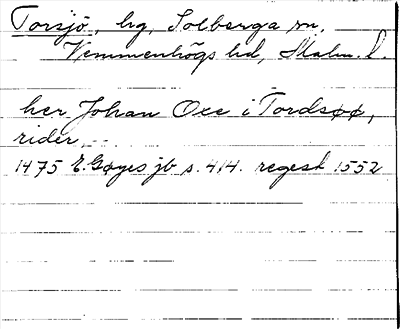 Torsjö, hg, Solberga sn,
Vemmenhögs hd, Malm. l.
her Johan Oxe i Tordsøø,
rider
1475 E. Gøyes jb s. 414. regest 1552